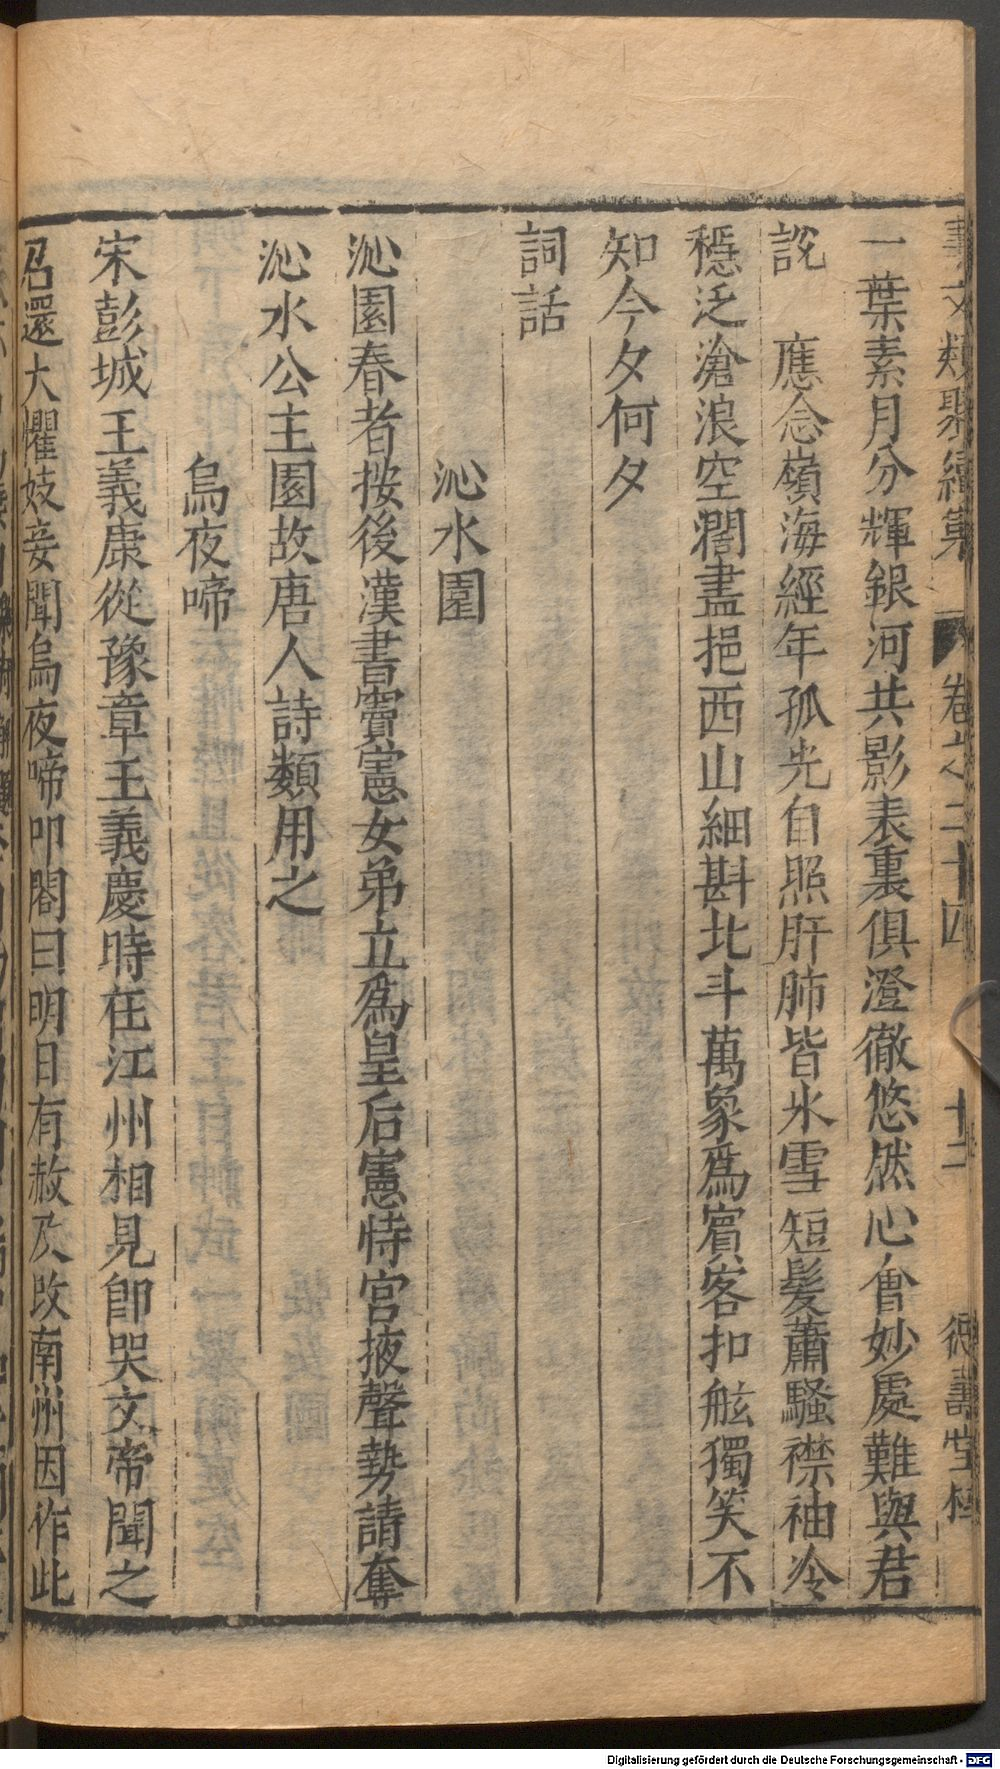 卷之二十四
一葉素月分輝銀河共影表裏俱澄徹悠然心會妙處難與君
說　應念嶺海經年孤光自照肝肺皆氷雪短髮蕭騷襟袖冷
穩泛滄浪空濶盡挹西山細斟北斗萬象爲賓客扣舷獨笑不
知今夕何夕
詞話
沁水園
沁園春者按後漢書竇憲女弟立爲皇后憲恃宮掖聲勢請奪
沁水公主園故唐人詩類用之
烏夜啼
宋彭城王義康從豫章王義慶時在江州相見卽哭文帝聞之
召還大懼妓妾聞烏夜啼叩閤曰明日有赦及改南州因作此
Digitalisierung gefördert durch die Deutsche Forschungsgemeinschaft - DFG